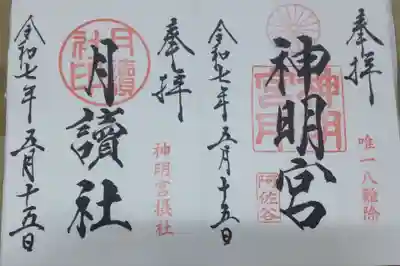 奉拝
唯一八難除
神明宮
神明宮
阿佐谷
令和七年五月十五日
奉拝
神明宮摂社
月讀社
月讀社印
令和七年五月十五日